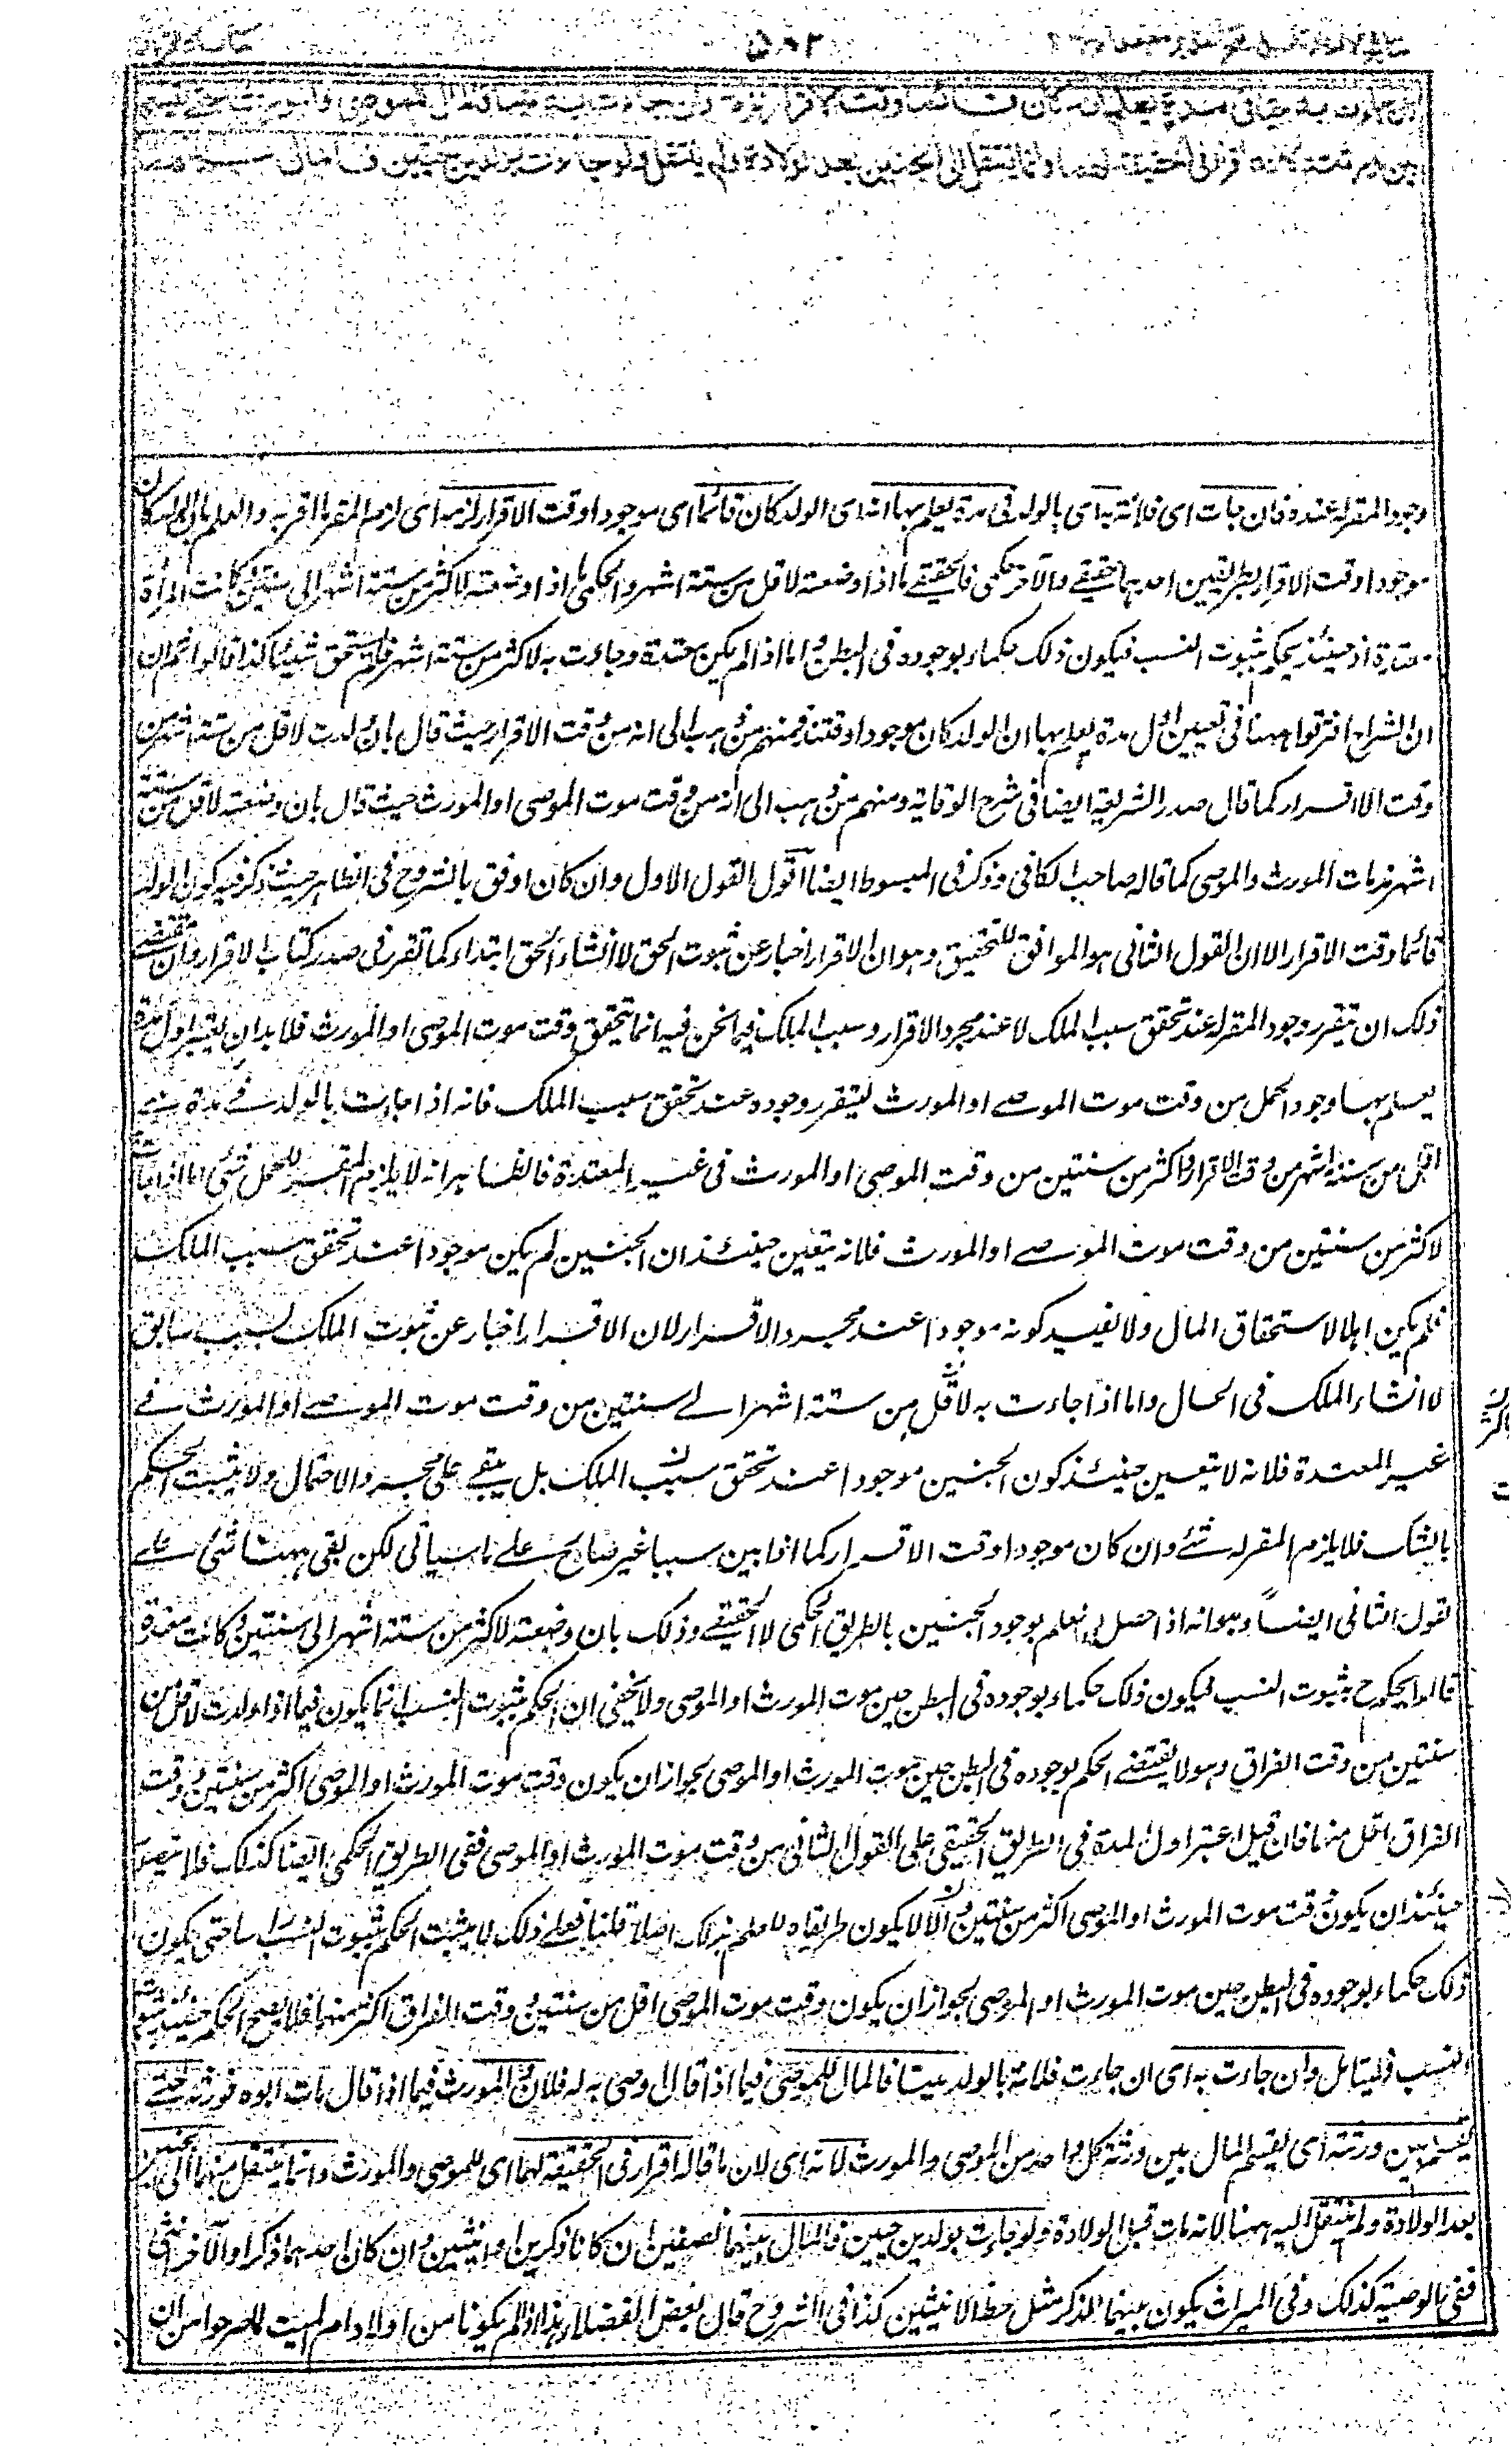 ۵۸۲
وجود المقر له عنده فان جاءت اى فلانة به اى بالولد فى مدة يعلم بها انه اى الولد كان قائما اى موجودا وقت الاقرار لزمه اى لزم المقر ما اقر به والعلم بان الولد كان
موجودا وقت الاقرار بطريقين احدهما حقيقے والآخر حكمى فالحقيقے ما اذا وضعته لاقل من ستة اشهر والحكمى ما اذا وضعته لاكثر من ستة اشهر الى سنتين وكانت المرأة
معتدة اذ حينئذ يحكم بثبوت النسب فيكون ذلك حكما بوجوده فى البطن واما اذا لم يكن معتدة وجاءت به لاكثر من ستة اشهر فلم يستحق شيئا كذا قالوا ثم ان
ان الشراح افترقوا ههنا فى تعيين اول مدة يعلم بها ان الولد كان موجودا وقتئذ فمنهم من ذهب الى انه من وقت الاقرار حيث قال بان ولدت لاقل من ستة اشهر من
وقت الاقرار كما قال صدر الشريعة ايضا فى شرح الوقاية ومنهم من ذهب الى انه من وقت موت الموصى او المورث حيث قال بان وضعته لاقل من ستة
اشهر مذ مات المورث والموصى كما قاله صاحب الكافى وذكر فى المبسوط ايضا اقول القول الاول وان كان اوفق بالشروح فى الظاهر حيث ذكر فيه كون الولد
قائما وقت الاقرار الا ان القول الثانى هو الموافق للتحقيق وهو ان الاقرار اخبار عن ثبوت الحق لا انشاء الحق ابتداء كما تقرر فى صدر كتاب الاقرار وان مقتضے
ذلك ان يتقرر وجود المقر له عند تحقق سبب الملك لا عند مجرد الاقرار وسبب الملك فيما نحن فيه انما يتحقق وقت موت الموصى او المورث فلا بد ان يعتبر اول مدة
يعلم بها وجود الحمل من وقت موت الموصے او المورث ليتقرر وجوده عند تحقق سبب الملك فانه اذا جاءت بالولد فے مدة هے
اقل من ستة اشهر من وقت الاقرار ولاكثر من سنتين من وقت الموصى او المورث فى غير المعتدة فالظاهر انه لا يلزم المقر للحمل شئ اما اذا جاءت به
لاكثر من سنتين من وقت موت الموصے او المورث فلانه يتعين حينئذ ان الجنين لم يكن موجودا عند تحقق سبب الملك
فلم يكن اهلا لاستحقاق المال ولا يفيد كونه موجودا عند مجرد الاقرار لان الاقرار اخبار عن ثبوت الملك بسبب سابق
لا انشاء الملك فى الحال واما اذا جاءت به لاقل من ستة اشهر الے سنتين من وقت موت الموصے او المورث فے
غير المعتدة فلانه لا يتعين حينئذ كون الجنين موجودا عند تحقق سبب الملك بل يبقے على مجرد الاحتمال ولا يثبت الحكم
بالشك فلا يلزم المقر له شئے وان كان موجودا وقت الاقرار كما اذا بين سببا غير صالح علے ما سياتى لكن بقى ههنا شئ علے
القول الثانى ايضا وهو انه اذا حصل العلم بوجود الجنين بالطريق الحكمى لا الحقيقے وذلك بان وضعته لاكثر من ستة اشهر الى سنتين وكانت معتدة
قالوا يحكم ح بثبوت النسب فيكون ذلك حكما بوجوده فى البطن حين موت المورث او الموصى ولا يخفى ان الحكم بثبوت النسب انما يكون فيما اذا ولدت لاقل من
سنتين من وقت الفراق وهو لا يقتضے الحكم بوجوده فى البطن حين موت المورث او الموصى لجواز ان يكون وقت موت المورث او الموصى اكثر من سنتين ووقت
الفراق اقل منها فان قيل اعتبر اول المدة فى الطريق الحقيقى على القول الثانى من وقت موت المورث او الموصى ففى الطريق الحكمى ايضا كذلك فلا يتصور
حينئذ ان يكون وقت موت المورث او الموصى اكثر من سنتين والا لا يكون طريقا للعلم بذلك اصلا قلنا فعلے ذلك لا يثبت الحكم بثبوت النسب راسا حتى يكون
ذلك حكما بوجوده فى البطن حين موت المورث او الموصى لجواز ان يكون وقت موت الموصى اقل من سنتين ووقت الفراق اكثر منهما فلا يصح الحكم حينئذ بثبوت
النسب فليتامل وان جاءت به اى ان جاءت فلانة بالولد ميتا فالمال للموصى فيما اذا قال اوصى به له فلان والمورث فيما اذا قال مات ابوه فورثه حتے
يقسم بين ورثته اى يقسم المال بين ورثة كل واحد من الموصى والمورث لانه اى لان ما قاله اقرار فى الحقيقة لهما اى للموصى والمورث وانما ينتقل منهما الى الجنين
بعد الولادة ولم ينتقل اليه ههنا لانه مات قبل الولادة ولو جاءت بولدين حيين فالمال بينهما نصفين ان كانا ذكرين او انثيين وان كان احدهما ذكرا والآخر انثى
ففى الوصية كذلك وفى الميراث يكون بينهما للذكر مثل حظ الانثيين كذا فى الشروح قال بعض الفضلاء هذا اذا لم يكونا من اولاد ام الميت لما صرحوا من ان